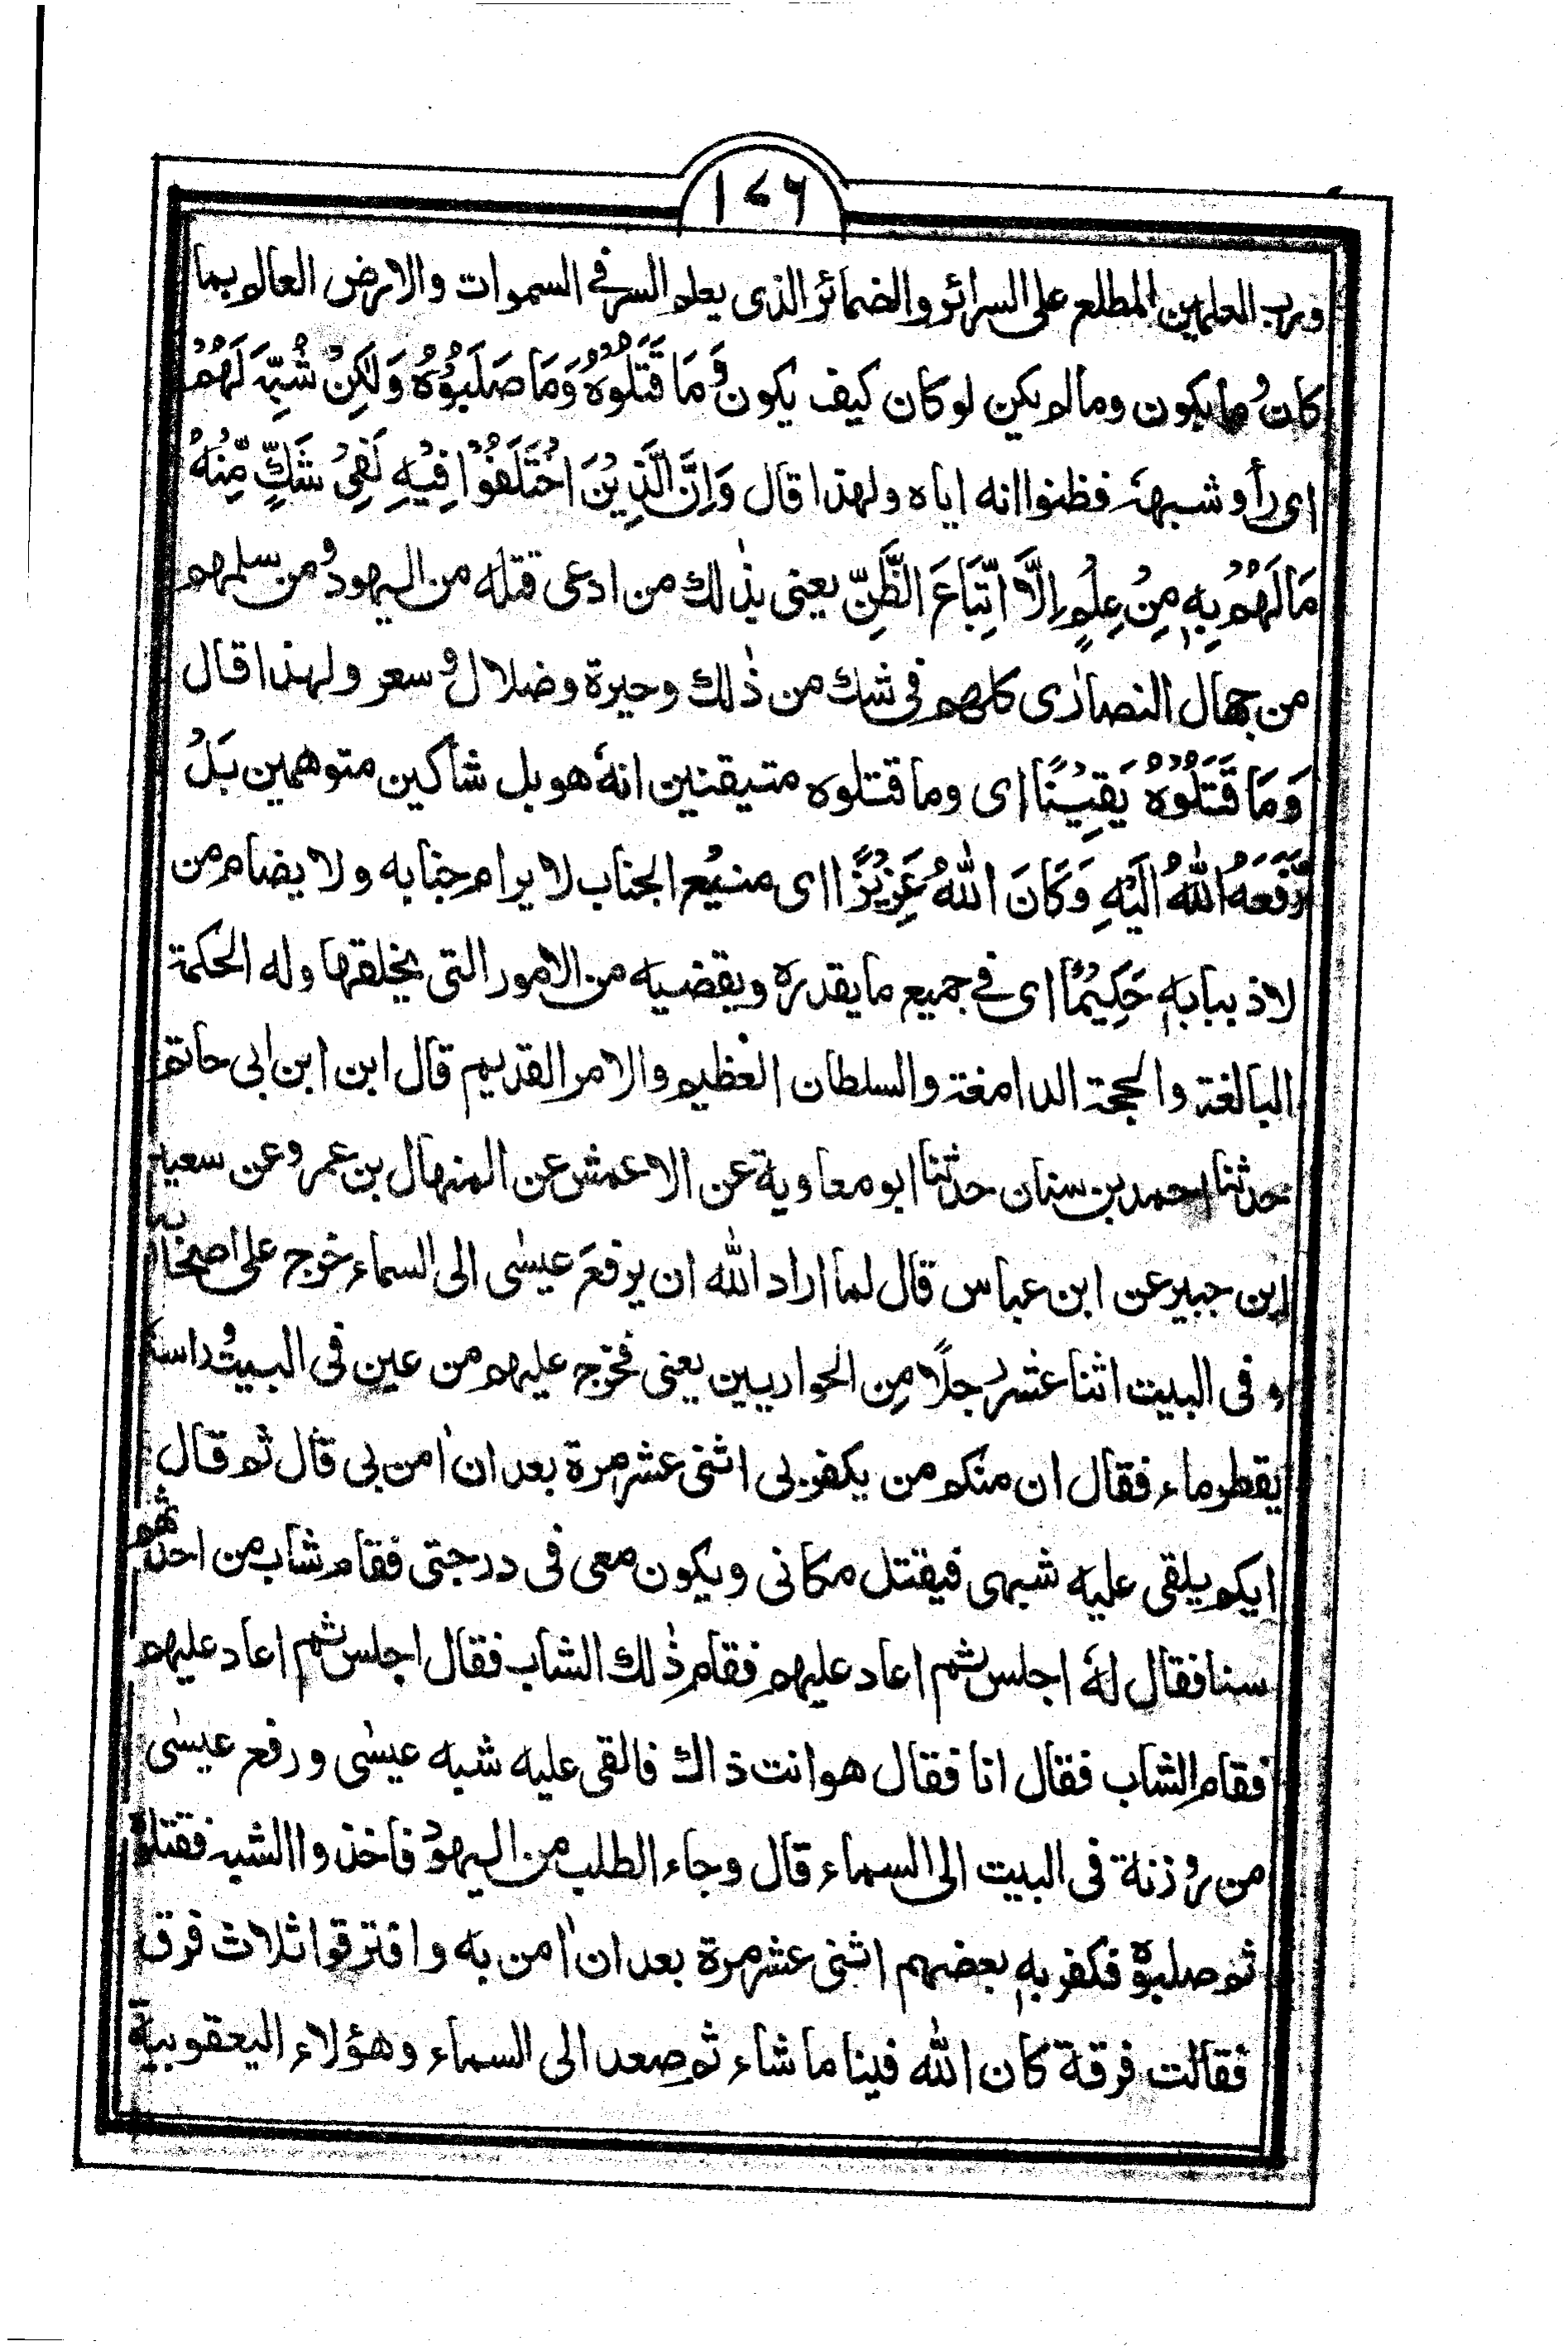 ۱۷۶
ورب العلمين المطلع على السرائر والضمائر الذى يعلم السر فى السموات والارض العالم بما
كان وما يكون ومالم يكن لو كان كيف يكون وَمَا قَتَلُوْهُ وَمَا صَلَبُوْهُ وَلٰكِنْ شُبِّهَ لَهُمْ
اى رأو شبههٗ فظنوا انه اياه ولهذا قال وَاِنَّ الَّذِيْنَ اخْتَلَفُوْا فِيْهِ لَفِىْ شَكٍّ مِّنْهُ
مَالَهُمْ بِهٖ مِنْ عِلْمٍ اِلَّا اتِّبَاعَ الظَّنِّ يعنى بذٰلك من ادعى قتله من اليهود ومن سلمهم
من جهال النصارٰى كلهم فى شك من ذٰلك وحيرة وضلال وسعر ولهذا قال
وَمَا قَتَلُوْهُ يَقِيْنًا اى وما قتلوه متيقنين انهٗ هو بل شاكين متوهمين بَلْ
رَّفَعَهُ اللّٰهُ اِلَيْهِ وَكَانَ اللّٰهُ عَزِيْزًا اى منيع الجناب لا يرام جنابه ولا يضام من
لاذ ببابهٖ حَكِيْمًا اى فى جميع ما يقدره ويقضيه من الامور التى يخلقها وله الحكمة
البالغة والحجة الدامغة والسلطان العظيم والامر القديم قال ابن ابن ابى حاتم
حدثنا احمد بن سنان حدثنا ابو معاوية عن الاعمش عن المنهال بن عمرو عن سعيد
ابن جبير عن ابن عباس قال لما اراد اللّٰه ان يرفعَ عيسٰى الى السماء خرج على اصحابه
و فى البيت اثنا عشر رجلًا مِن الحواريين يعنى فخرج عليهم من عين فى البيت وراسهٗ
يقطر ماء فقال ان منكم من يكفر بى اثنى عشر مرة بعد ان اٰمن بى قال ثم قال
ايكم يلقى عليه شبهى فيقتل مكانى ويكون معى فى درجتى فقام شاب من احدثهم
سنا فقال لهٗ اجلس ثم اعاد عليهم فقام ذٰلك الشاب فقال اجلس ثم اعاد عليهم
فقام الشاب فقال انا فقال هو انت ذاك فالقى عليه شبه عيسٰى ورفع عيسٰى
من روزنة فى البيت الى السماء قال وجاء الطلب من اليهود فاخذوا الشبه فقتلوه
ثم صلبوه فكفر بهٖ بعضهم اثنى عشر مرة بعد ان اٰمن به وافترقوا ثلاث فرق
فقالت فرقة كان اللّٰه فينا ما شاء ثم صعد الى السماء وهؤلاء اليعقوبية